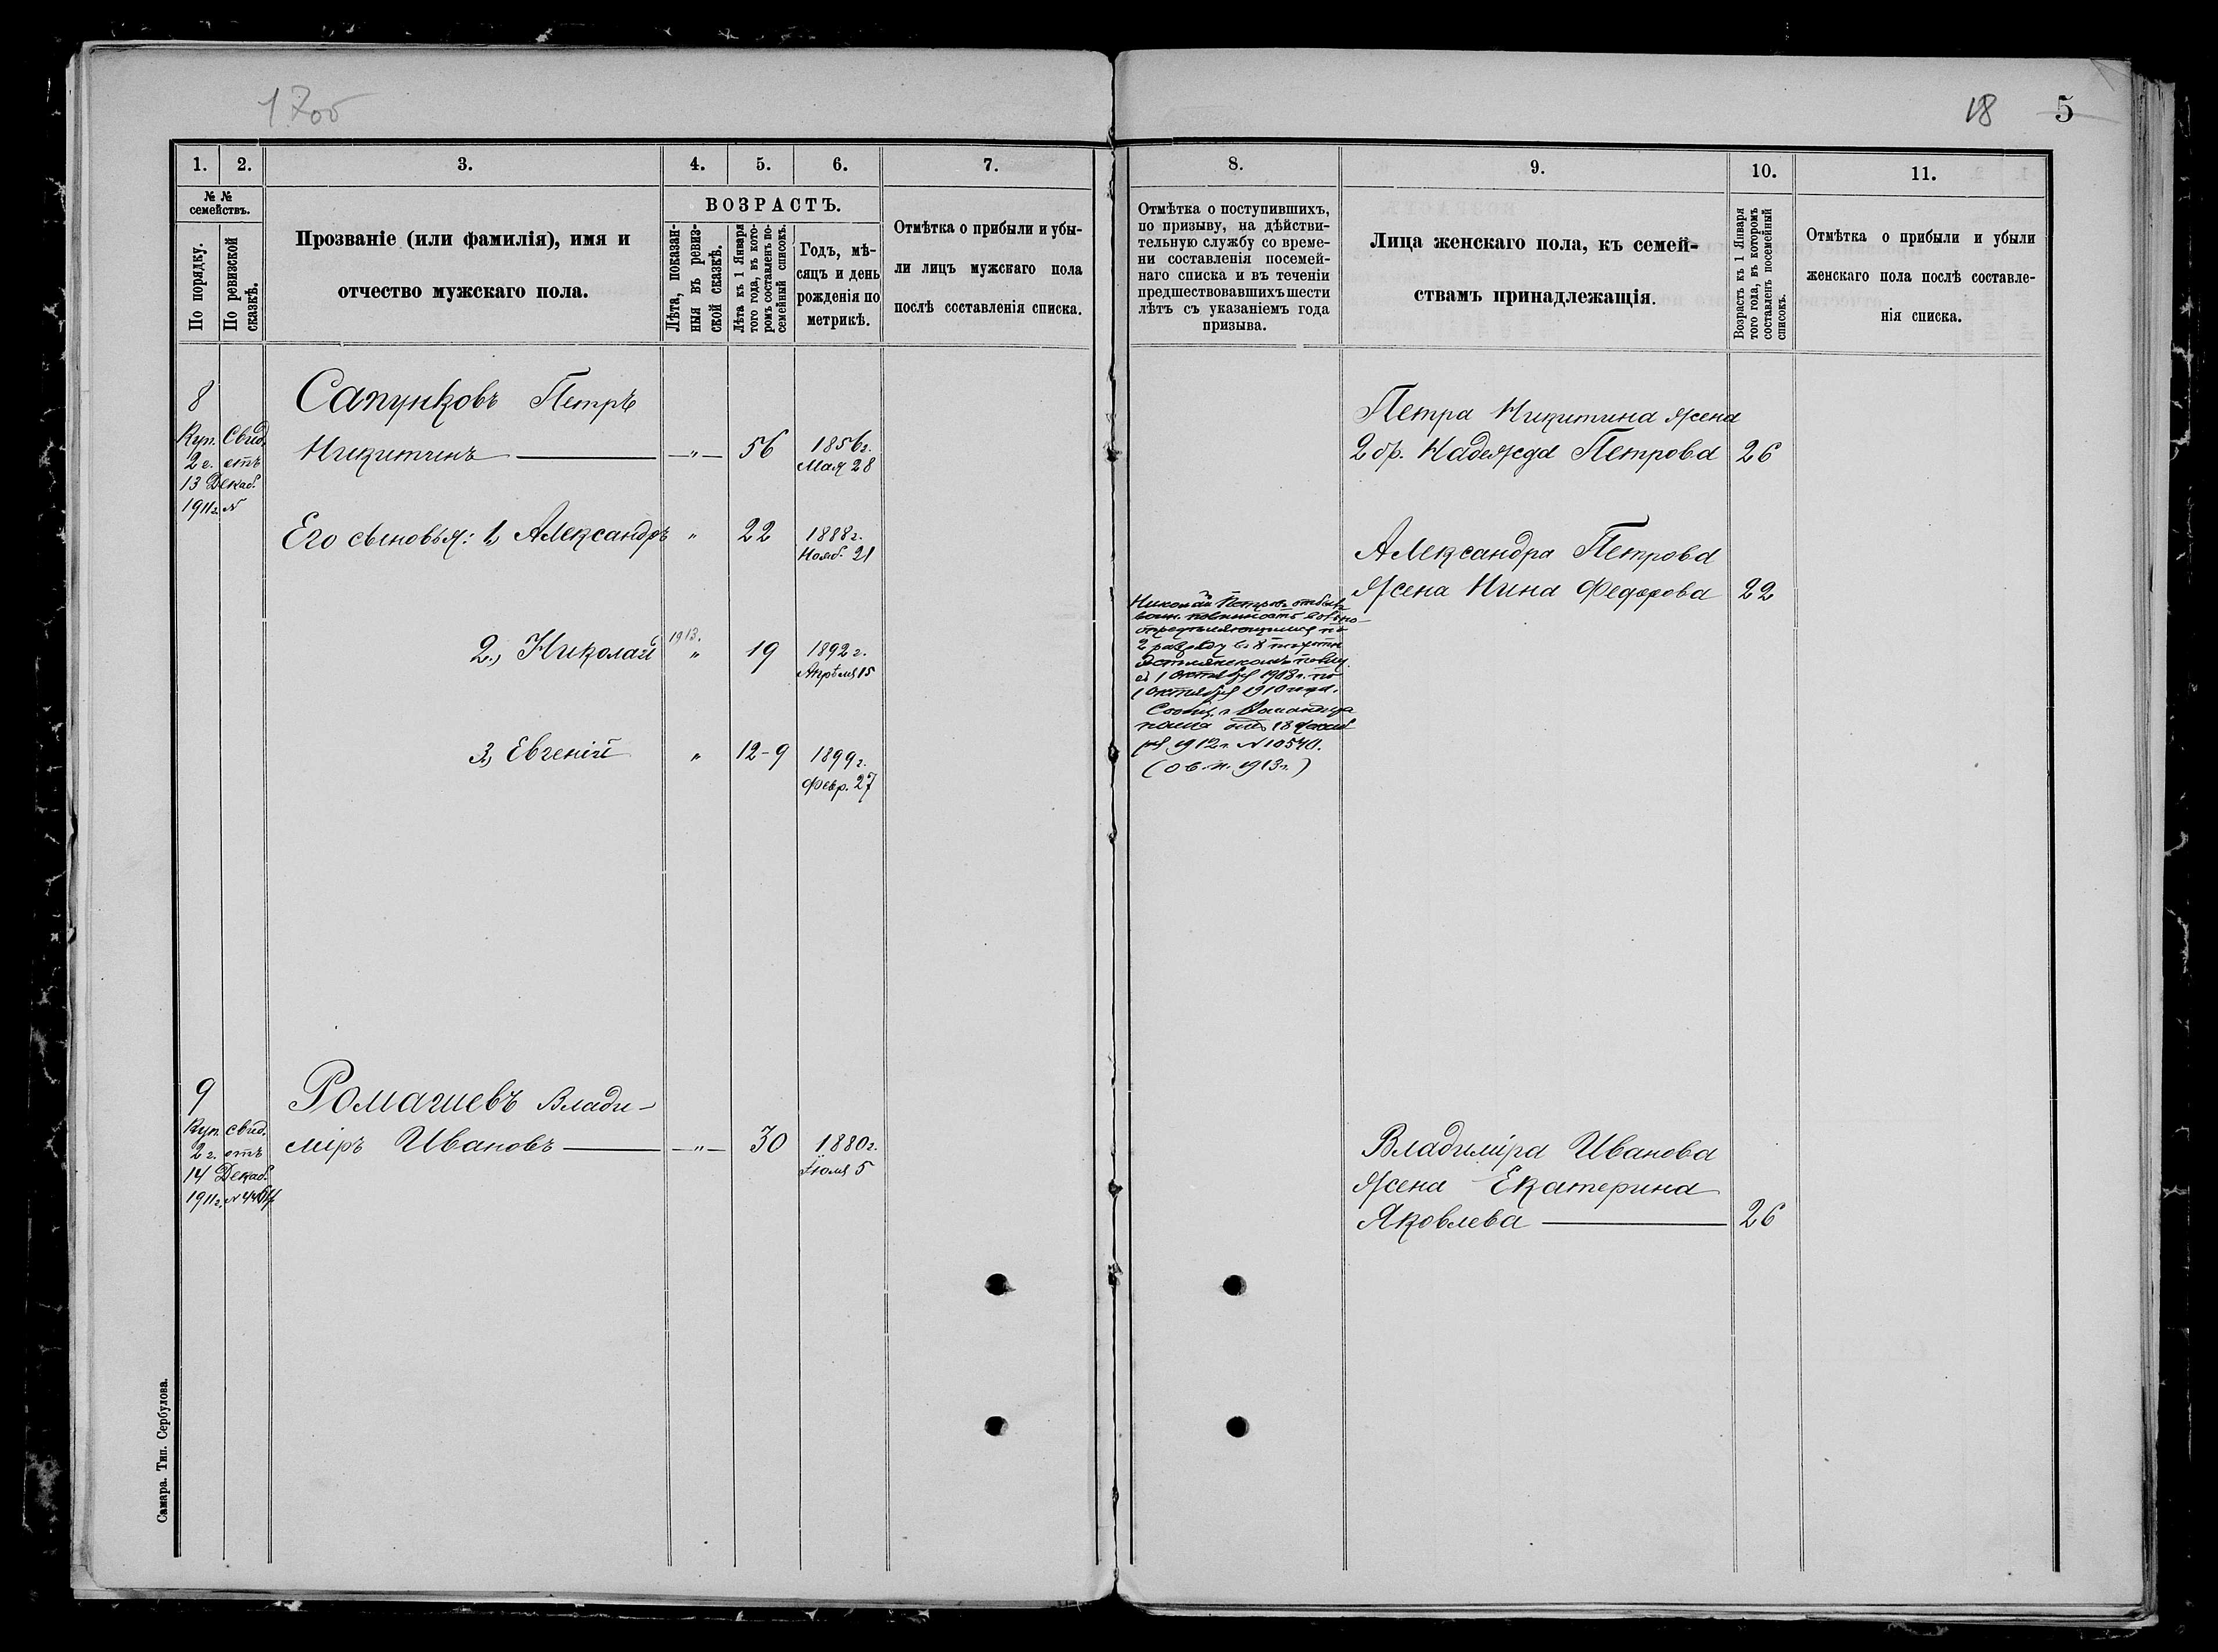 1700
18 5
1. 2. 3. 4. 5. 6. 7.
№ №
семействъ.
По порядку.
По ревизской
сказкѣ.
Прозваніе (или фамилія), имя и
отчество мужскаго пола.
ВОЗРАСТЪ.
Лѣта, показан-
ныя въ ревиз-
ской сказкѣ.
Лѣта къ 1 Января
того года, въ кото-
ромъ составленъ по-
семейный списокъ.
Годъ, мѣ-
сяцъ и день
рожденія по
метрикѣ.
Отмѣтка о прибыли и убы-
ли лицъ мужскаго пола
послѣ составленія списка.
8
Куп. Свид.
2 г. отъ
13 Декаб.
1911 г. №
Сапунковъ Петръ
Никитинъ — " — 56 1856 г.
Мая 28
Его сыновья: 1, Александръ " 22 1888 г.
Нояб. 21
1913.
2, Николай " 19 1892 г.
Апрѣля 15
3, Евгеній " 12-9 1899 г.
Февр. 27
9
Куп. свид.
2 г. отъ
14 Декаб.
1911 г. №
Ромашевъ Влади-
міръ Ивановъ — " — 30 1880 г.
Іюля 5
Самара. Тип. Сербулова.
8. 9. 10. 11.
Отмѣтка о поступившихъ,
по призыву, на дѣйстви-
тельную службу со време-
ни составленія посемей-
наго списка и въ теченіи
предшествовавшихъ шести
лѣтъ съ указаніемъ года
призыва.
Лица женскаго пола, къ семей-
ствамъ принадлежащія.
Возрастъ къ 1 Января
того года, въ которомъ
составленъ посемейный
списокъ.
Отмѣтка о прибыли и убыли
женскаго пола послѣ составле-
нія списка.
Петра Никитина жена
2 бр. Надежда Петрова 26
Александра Петрова
жена Нина Федорова 22
Николай Петровъ отбылъ
воин. повинность вольно-
опредѣляющимся по
2 разряду въ 8 пѣхотн.
Эстляндскомъ полку
съ 1 Октября 1908 г. по
1 Октября 1910 года.
Сообщ. Командира
полка отъ 18 Декаб
ря 1912 г. № 10540.
(о в. п. 1913 г.)
Владиміра Иванова
жена Екатерина
Яковлева — 26